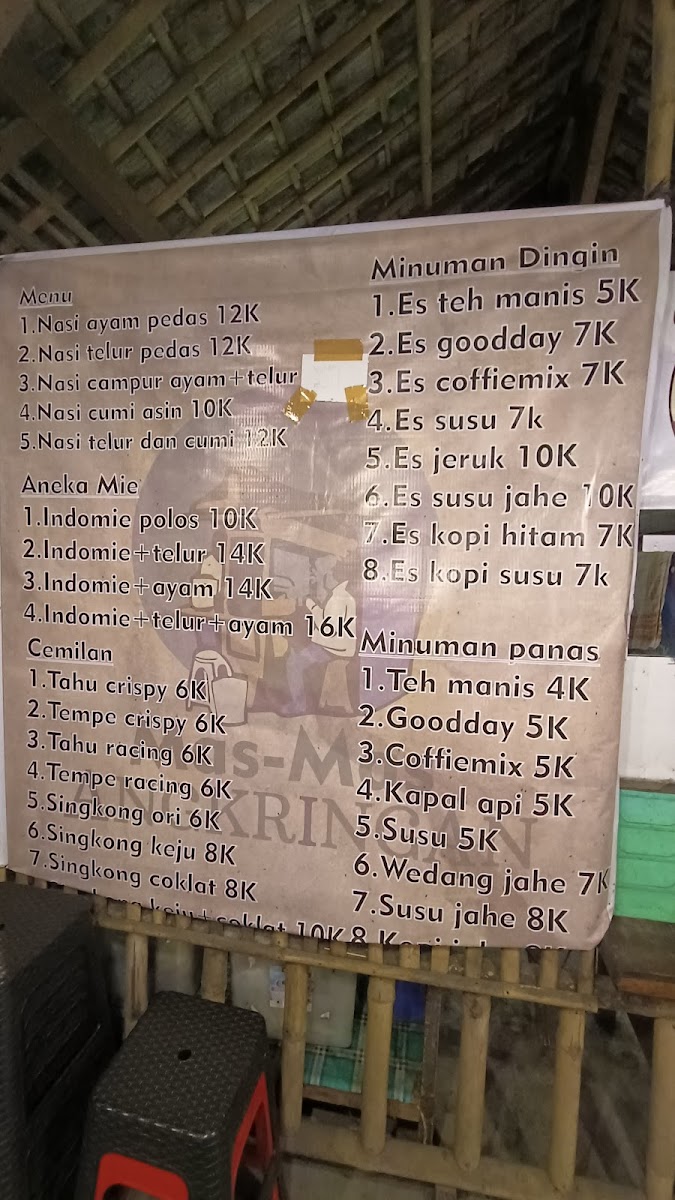 Menu
1.Nasi ayam pedas 12K
2.Nasi telur pedas 12K
3.Nasi campur ayam+telur
4.Nasi cumi asin 10K
5.Nasi telur dan cumi 12K
Aneka Mie
1.Indomie polos 10K
2.Indomie+telur 14K
3.Indomie+ayam 14K
4.Indomie+telur+ayam 16K
Cemilan
1.Tahu crispy 6K
2.Tempe crispy 6K
3.Tahu racing 6K
4.Tempe racing 6K
5.Singkong ori 6K
6.Singkong keju 8K
7.Singkong coklat 8K
keju+coklat 10K
Minuman Dingin
1.Es teh manis 5K
2.Es goodday 7K
3.Es coffiemix 7K
4.Es susu 7k
5.Es jeruk 10K
6.Es susu jahe 10K
7.Es kopi hitam 7K
8.Es kopi susu 7k
Minuman panas
1.Teh manis 4K
2.Goodday 5K
3.Coffiemix 5K
4.Kapal api 5K
5.Susu 5K
6.Wedang jahe 7K
7.Susu jahe 8K
8.Kopi
Mas-Mas
ANGKRINGAN